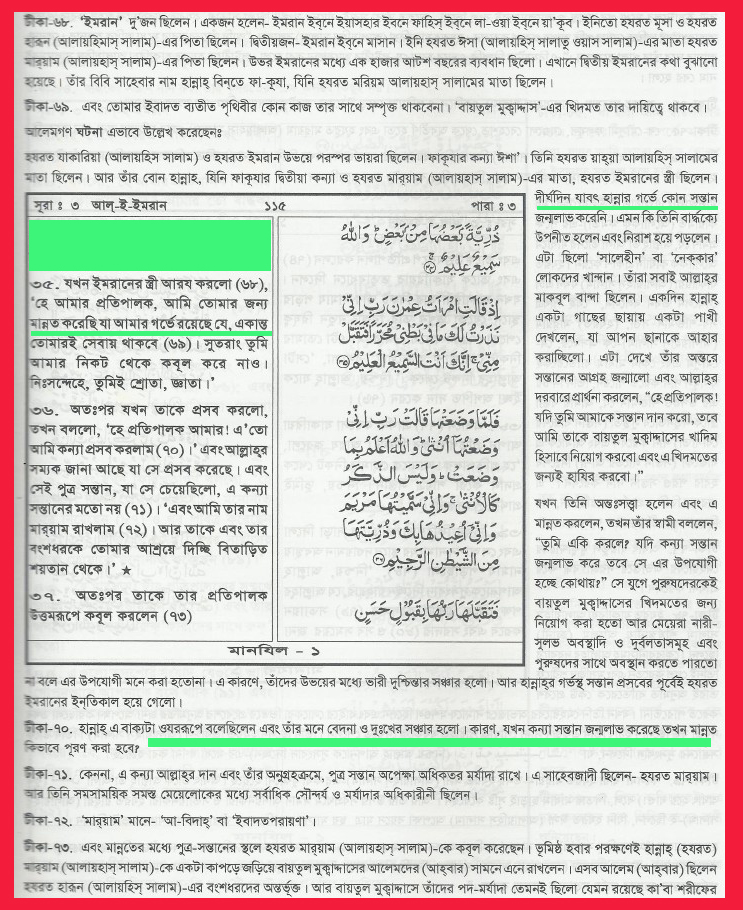 টীকা-৬৮. 'ইমরান' দু'জন ছিলেন। একজন হলেন- ইমরান ইব্নে ইয়াসহার ইবনে ফাহিস্ ইবনে লা-ওয়া ইব্নে য়া'কূব। ইনিতো হযরত মূসা ও হযরত
হারূন (আলায়হিমাস্ সালাম)-এর পিতা ছিলেন। দ্বিতীয়জন- ইমরান ইব্নে মাসান। ইনি হযরত ঈসা (আলায়হিস্ সালাতু ওয়াস সালাম)-এর মাতা হযরত
মার্‌য়াম (আলায়হাস্ সালাম)-এর পিতা ছিলেন। উভয় ইমরানের মধ্যে এক হাজার আটশ বছরের ব্যবধান ছিলো। এখানে দ্বিতীয় ইমরানের কথা বুঝানো
হয়েছে। তাঁর বিবি সাহেবার নাম হান্নাহ্ বিন্তে ফা-কূযা, যিনি হযরত মরিয়ম আলায়হাস্ সালামের মাতা ছিলেন।
টীকা-৬৯. এবং তোমার ইবাদত ব্যতীত পৃথিবীর কোন কাজ তার সাথে সম্পৃক্ত থাকবেনা। 'বায়তুল মুক্বাদ্দাস'-এর খিদমত তার দায়িত্বে থাকবে।
আলেমগণ ঘটনা এভাবে উল্লেখ করেছেনঃ
হযরত যাকারিয়া (আলায়হিস সালাম) ও হযরত ইমরান উভয়ে পরস্পর ভায়রা ছিলেন। ফাকূযার কন্যা ঈশা'। তিনি হযরত য়াহ্য়া আলায়হিস্ সালামের
মাতা ছিলেন। আর তাঁর বোন হান্নাহ্, যিনি ফাকূযার দ্বিতীয়া কন্যা ও হযরত মার্‌য়াম (আলায়হাস্ সালাম)-এর মাতা, হযরত ইমরানের স্ত্রী ছিলেন।
দীর্ঘদিন যাবৎ হান্নার গর্ভে কোন সন্তান
জন্মলাভ করেনি। এমন কি তিনি বার্দ্ধক্যে
উপনীত হলেন এবং নিরাশ হয়ে পড়লেন।
এটা ছিলো 'সালেহীন' বা 'নেক্‌কার'
লোকদের খান্দান। তাঁরা সবাই আল্লাহ্‌র
মাক্ববূল বান্দা ছিলেন। একদিন হান্নাহ্
একটা গাছের ছায়ায় একটা পাখী
দেখলেন, যা আপন ছানাকে আহার
করাচ্ছিলো। এটা দেখে তাঁর অন্তরে
সন্তানের আগ্রহ জন্মালো এবং আল্লাহ্‌র
দরবারে প্রার্থনা করলেন, "হে প্রতিপালক!
যদি তুমি আমাকে সন্তান দান করো, তবে
আমি তাকে বায়তুল মুক্বাদ্দাসের খাদিম
হিসাবে নিয়োগ করবো এবং এ খিদমতের
জন্যই হাযির করবো।"
যখন তিনি অন্তঃসত্ত্বা হলেন এবং এ
মান্নত করলেন, তখন তাঁর স্বামী বললেন,
"তুমি একি করলে? যদি কন্যা সন্তান
জন্মলাভ করে তবে সে এর উপযোগী
হচ্ছে কোথায়?" সে যুগে পুরুষদেরকেই
বায়তুল মুক্বাদ্দাসের খিদমতের জন্য
নিয়োগ করা হতো আর মেয়েরা নারী-
সুলভ অবস্থাদি ও দুর্বলতাসমূহ এবং
পুরুষদের সাথে অবস্থান করতে পারতো
সূরা : ৩ আল্-ই-ইমরান ১১৫ পারা : ৩
৩৫. যখন ইমরানের স্ত্রী আরয করলো (৬৮),
'হে আমার প্রতিপালক, আমি তোমার জন্য
মান্নত করেছি যা আমার গর্ভে রয়েছে যে, একান্ত
তোমারই সেবায় থাকবে (৬৯)। সুতরাং তুমি
আমার নিকট থেকে কবূল করে নাও।
নিঃসন্দেহে, তুমিই শ্রোতা, জ্ঞাতা।'
৩৬. অতঃপর যখন তাকে প্রসব করলো,
তখন বললো, 'হে প্রতিপালক আমার! এ'তো
আমি কন্যা প্রসব করলাম (৭০)।' এবং আল্লাহ্‌র
সম্যক জানা আছে যা সে প্রসব করেছে। এবং
সেই পুত্র সন্তান, যা সে চেয়েছিলো, এ কন্যা
সন্তানের মতো নয় (৭১)। 'এবং আমি তার নাম
মার্‌য়াম রাখলাম (৭২)। আর তাকে এবং তার
বংশধরকে তোমার আশ্রয়ে দিচ্ছি বিতাড়িত
শয়তান থেকে।' ★
৩৭. অতঃপর তাকে তার প্রতিপালক
উত্তমরূপে কবূল করলেন (৭৩)
ذُرِّيَّةً بَعْضُهَا مِنْ بَعْضٍ وَاللهُ
سَمِيعٌ عَلِيمٌ ۝
إِذْ قَالَتِ امْرَأَتُ عِمْرٰنَ رَبِّ إِنِّي
نَذَرْتُ لَكَ مَا فِي بَطْنِي مُحَرَّرًا فَتَقَبَّلْ
مِنِّي ۚ إِنَّكَ أَنْتَ السَّمِيعُ الْعَلِيمُ ۝
فَلَمَّا وَضَعَتْهَا قَالَتْ رَبِّ إِنِّي
وَضَعْتُهَا أُنْثٰى ۗ وَاللهُ أَعْلَمُ بِمَا
وَضَعَتْ ۗ وَلَيْسَ الذَّكَرُ
كَالْأُنْثٰى ۚ وَإِنِّي سَمَّيْتُهَا مَرْيَمَ
وَإِنِّي أُعِيذُهَا بِكَ وَذُرِّيَّتَهَا
مِنَ الشَّيْطٰنِ الرَّجِيمِ ۝
فَتَقَبَّلَهَا رَبُّهَا بِقَبُولٍ حَسَنٍ
মানযিল - ১
না বলে এর উপযোগী মনে করা হতোনা। এ কারণে, তাঁদের উভয়ের মধ্যে ভারী দুশ্চিন্তার সঞ্চার হলো। আর হান্নাহ্‌র গর্ভস্থ সন্তান প্রসবের পূর্বেই হযরত
ইমরানের ইন্‌তিকাল হয়ে গেলো।
টীকা-৭০. হান্নাহ্ এ বাক্যটা ওযররূপে বলেছিলেন এবং তাঁর মনে বেদনা ও দুঃখের সঞ্চার হলো। কারণ, যখন কন্যা সন্তান জন্মলাভ করেছে তখন মান্নত
কিভাবে পূরণ করা হবে?
টীকা-৭১. কেননা, এ কন্যা আল্লাহ্‌র দান এবং তাঁর অনুগ্রহক্রমে, পুত্র সন্তান অপেক্ষা অধিকতর মর্যাদা রাখে। এ সাহেবজাদী ছিলেন- হযরত মার্‌য়াম।
আর তিনি সমসাময়িক সমস্ত মেয়েলোকের মধ্যে সর্বাধিক সৌন্দর্য ও মর্যাদার অধিকারীনী ছিলেন।
টীকা-৭২. 'মার্‌য়াম' মানে- 'আ-বিদাহ্' বা 'ইবাদতপরায়ণা'।
টীকা-৭৩. এবং মান্নতের মধ্যে পুত্র-সন্তানের স্থলে হযরত মার্‌য়াম (আলায়হাস্ সালাম)-কে কবূল করেছেন। ভূমিষ্ঠ হবার পরক্ষণেই হান্নাহ্ (হযরত)
মার্‌য়াম (আলায়হাস্ সালাম)-কে একটা কাপড়ে জড়িয়ে বায়তুল মুক্বাদ্দাসের আলেমদের (আহ্‌বার) সামনে এনে রাখলেন। এসব আলেম (আহ্‌বার) ছিলেন
হযরত হারূন (আলায়হিস্ সালাম)-এর বংশধরদের অন্তর্ভূক্ত। আর বায়তুল মুক্বাদ্দাসে তাঁদের পদ-মর্যাদা তেমনই ছিলো যেমন রয়েছে কা'বা শরীফের